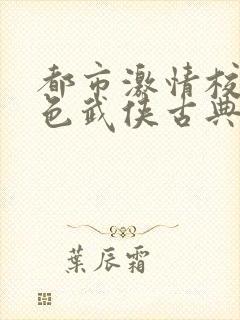 都市激情校
色武侠古典
葉辰霜